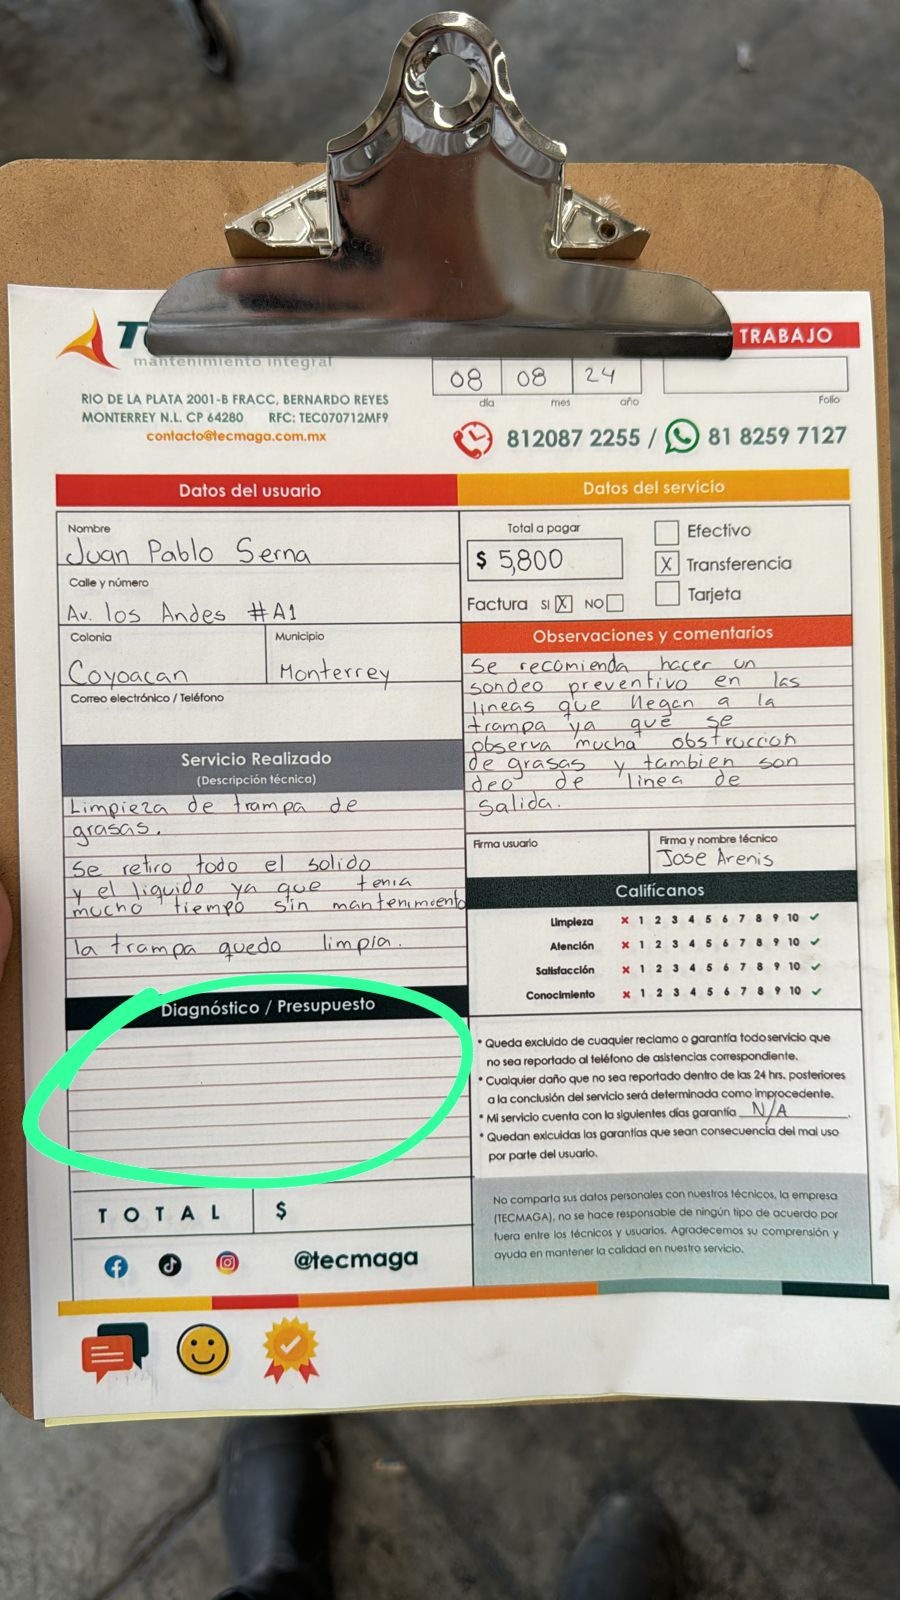 TRABAJO
mantenimiento integral
08 08 24
día mes año
Folio
RIO DE LA PLATA 2001-B FRACC, BERNARDO REYES
MONTERREY N.L. CP 64280 RFC: TEC070712MF9
contacto@tecmaga.com.mx
812087 2255 / 81 8259 7127
Datos del usuario
Nombre
Juan Pablo Serna
Calle y número
Av. los Andes #A1
Colonia
Coyoacan
Municipio
Monterrey
Correo electrónico / Teléfono
Servicio Realizado
(Descripción técnica)
Limpieza de trampa de
grasas.
se retiro todo el solido
y el liquido ya que tenia
mucho tiempo sin mantenimiento
la trampa quedo limpia.
Diagnóstico / Presupuesto
TOTAL $
@tecmaga
Datos del servicio
Total a pagar
$ 5,800
Efectivo
X Transferencia
Tarjeta
Factura SI X NO
Observaciones y comentarios
Se recomienda hacer un
sondeo preventivo en las
lineas que llegan a la
trampa ya que se
observa mucha obstruccion
de grasas y tambien son
deo de linea de
salida.
Firma usuario
Firma y nombre técnico
Jose Arenis
Califícanos
Limpieza x 1 2 3 4 5 6 7 8 9 10 ✓
Atención x 1 2 3 4 5 6 7 8 9 10 ✓
Satisfacción x 1 2 3 4 5 6 7 8 9 10 ✓
Conocimiento x 1 2 3 4 5 6 7 8 9 10 ✓
* Queda excluido de cuaquier reclamo o garantía todo servicio que
no sea reportado al teléfono de asistencias correspondiente.
* Cualquier daño que no sea reportado dentro de las 24 hrs. posteriores
a la conclusión del servicio será determinada como improcedente.
* Mi servicio cuenta con la siguientes días garantía N/A.
* Quedan exlcuidas las garantías que sean consecuencia del mal uso
por parte del usuario.
No comparta sus datos personales con nuestros técnicos, la empresa
(TECMAGA), no se hace responsable de ningún tipo de acuerdo por
fuera entre los técnicos y usuarios. Agradecemos su comprensión y
ayuda en mantener la calidad en nuestro servicio.